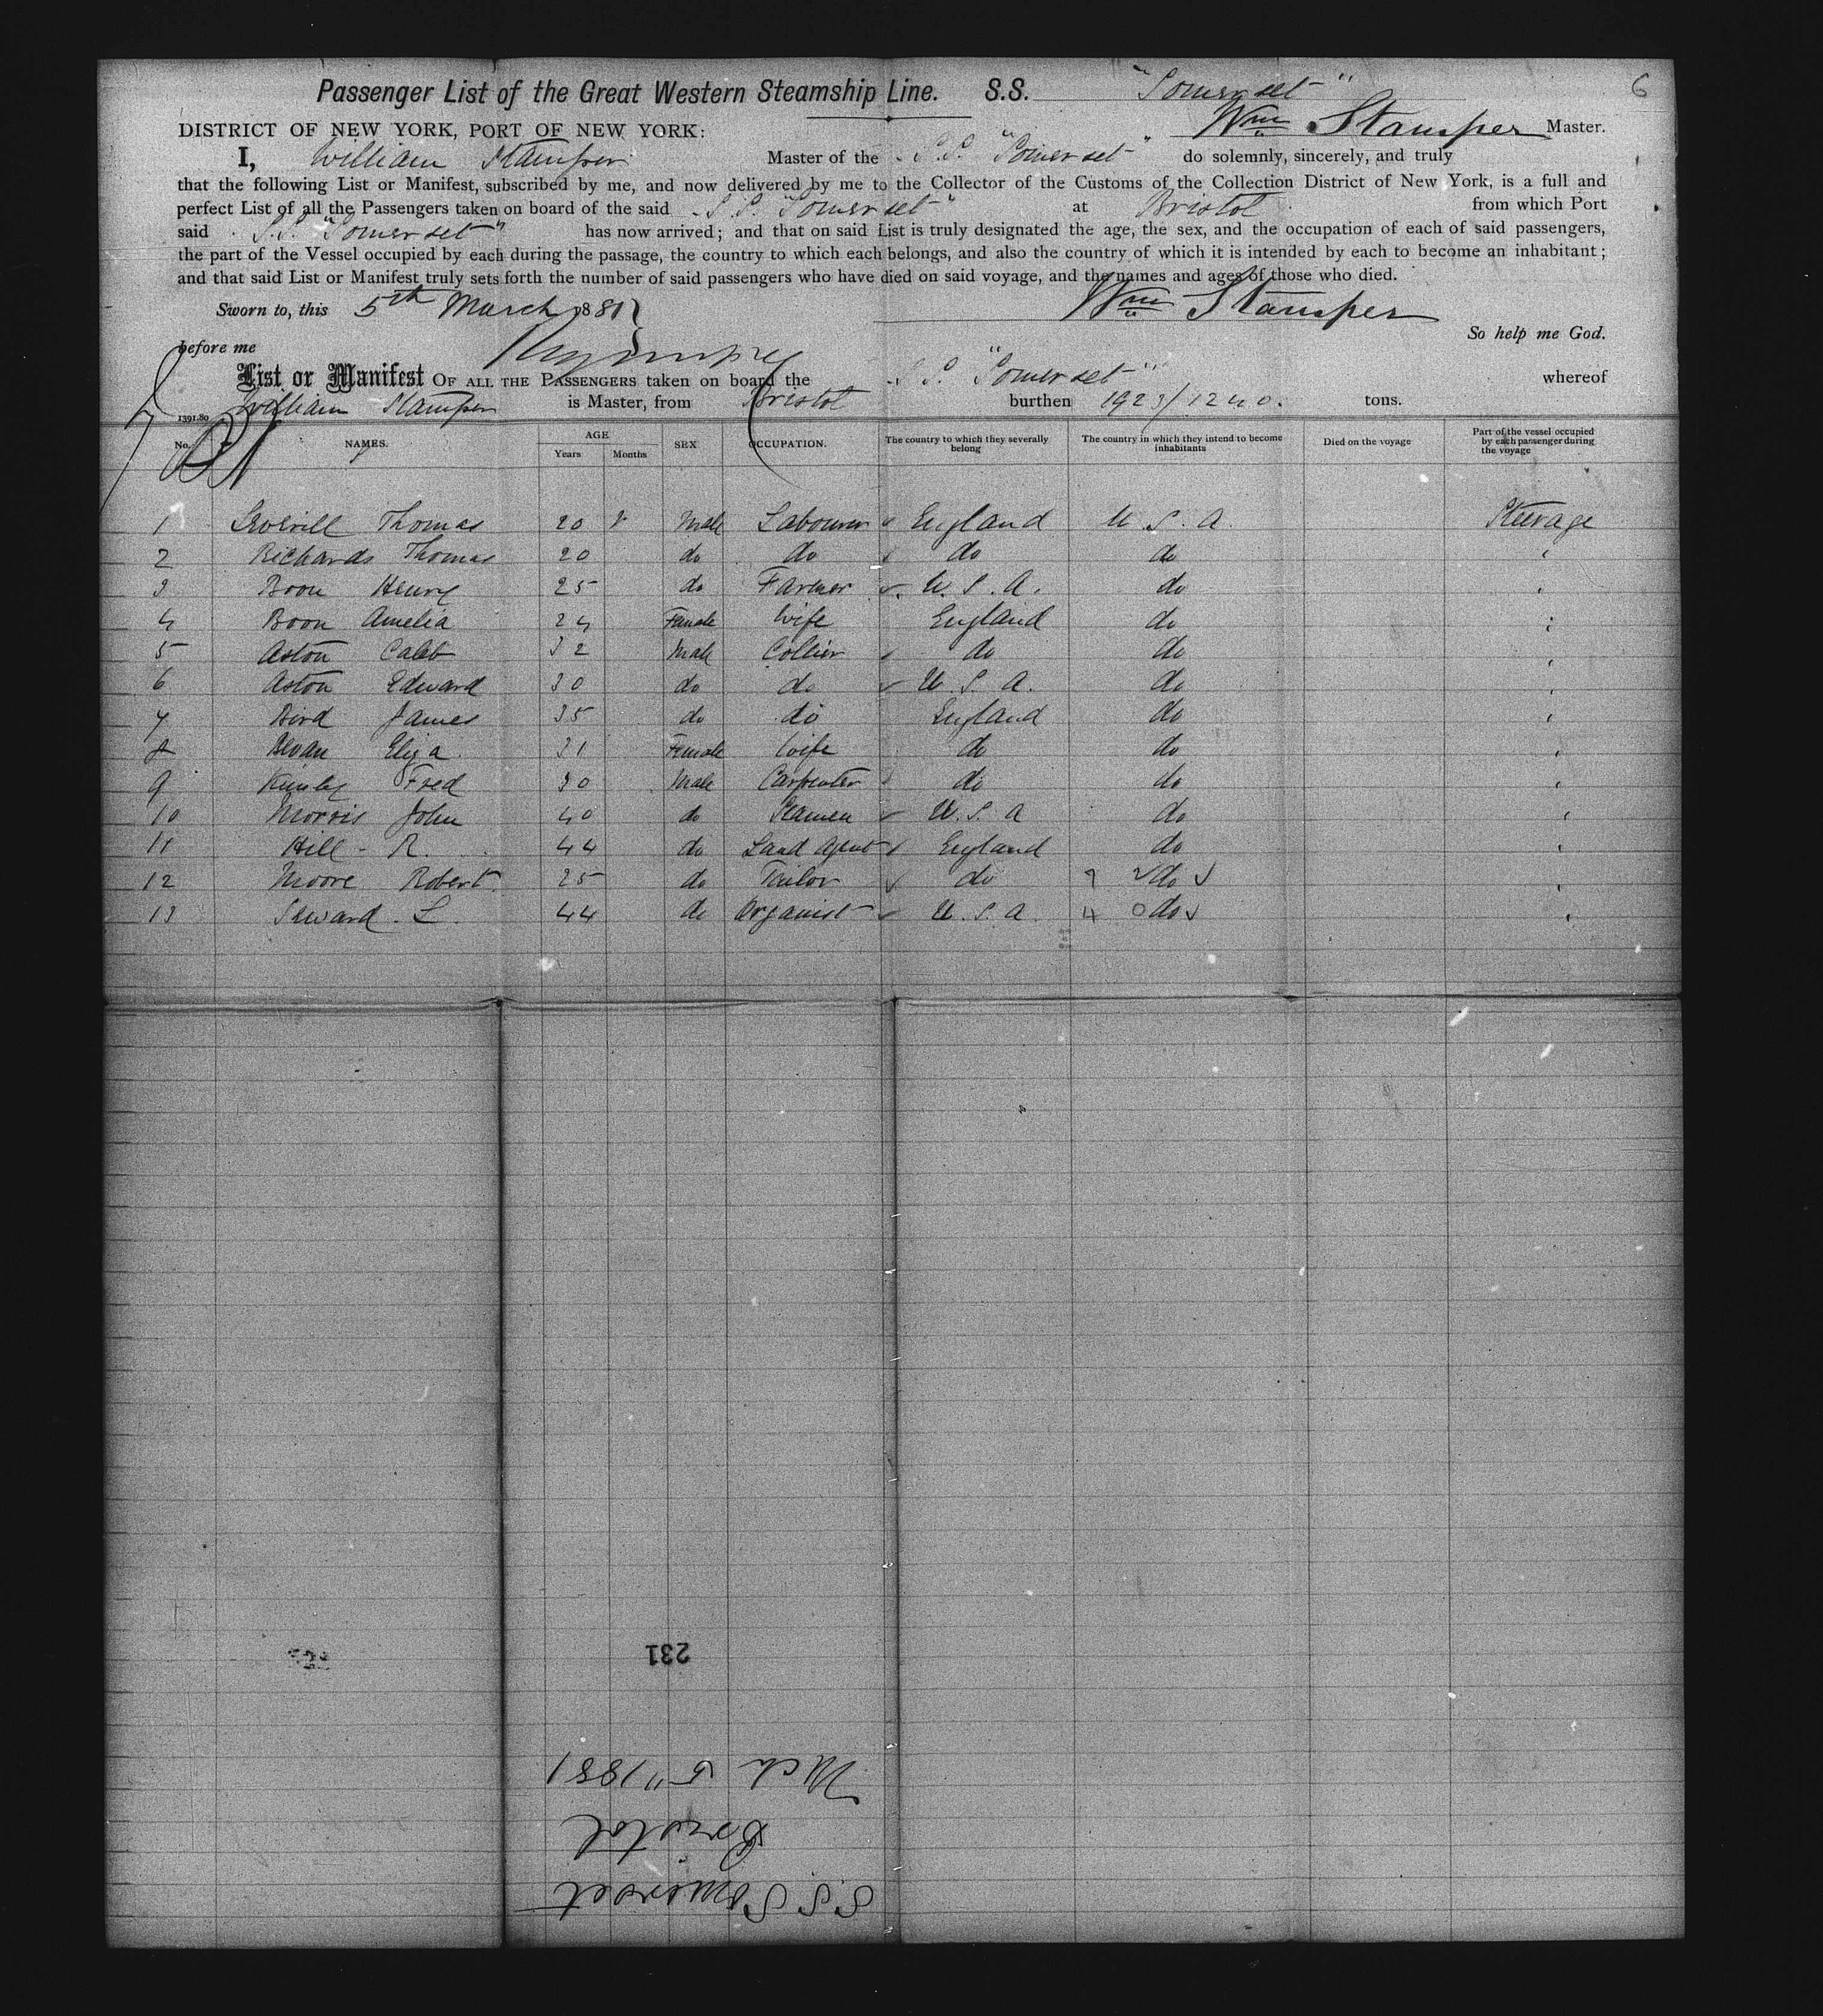 Passenger List of the Great Western Steamship Line. S.S. "Somerset" 6
DISTRICT OF NEW YORK, PORT OF NEW YORK: Wm Stamper Master.
I, William Stamper Master of the S.S. "Somerset" do solemnly, sincerely, and truly
that the following List or Manifest, subscribed by me, and now delivered by me to the Collector of the Customs of the Collection District of New York, is a full and
perfect List of all the Passengers taken on board of the said S.S. "Somerset" at Bristol from which Port
said S.S. "Somerset" has now arrived; and that on said List is truly designated the age, the sex, and the occupation of each of said passengers,
the part of the Vessel occupied by each during the passage, the country to which each belongs, and also the country of which it is intended by each to become an inhabitant;
and that said List or Manifest truly sets forth the number of said passengers who have died on said voyage, and the names and ages of those who died.
Sworn to, this 5th March 1881 Wm Stamper
So help me God.
before me
List or Manifest OF ALL THE PASSENGERS taken on board the S.S. "Somerset" whereof
1391.80 William Stamper is Master, from Bristol burthen 1923/1240. tons.
No. NAMES. AGE Years Months SEX OCCUPATION. The country to which they severally belong The country in which they intend to become inhabitants Died on the voyage Part of the vessel occupied by each passenger during the voyage
1 Thomas 20 Male Labourer England U.S.A. Steerage
2 Richards Thomas 20 do do do do "
3 Boon Henry 25 do Farmer U.S.A. do "
4 Boon Amelia 24 Female Wife England do "
5 Aston Caleb 32 Male Collier do do "
6 Aston Edward 30 do do U.S.A. do "
7 Bird James 35 do do England do "
8 Bevan Eliza 31 Female Wife do do "
9 Fred 30 Male Carpenter do do "
10 Morris John 40 do Seamen U.S.A do "
11 Hill - R. 44 do Land Agent England do "
12 Moore Robert 25 do Tailor do do "
13 Seward. L. 44 do Organist U.S.A. do "
231
Mch 5" 1881
Bristol
S.S. Somerset